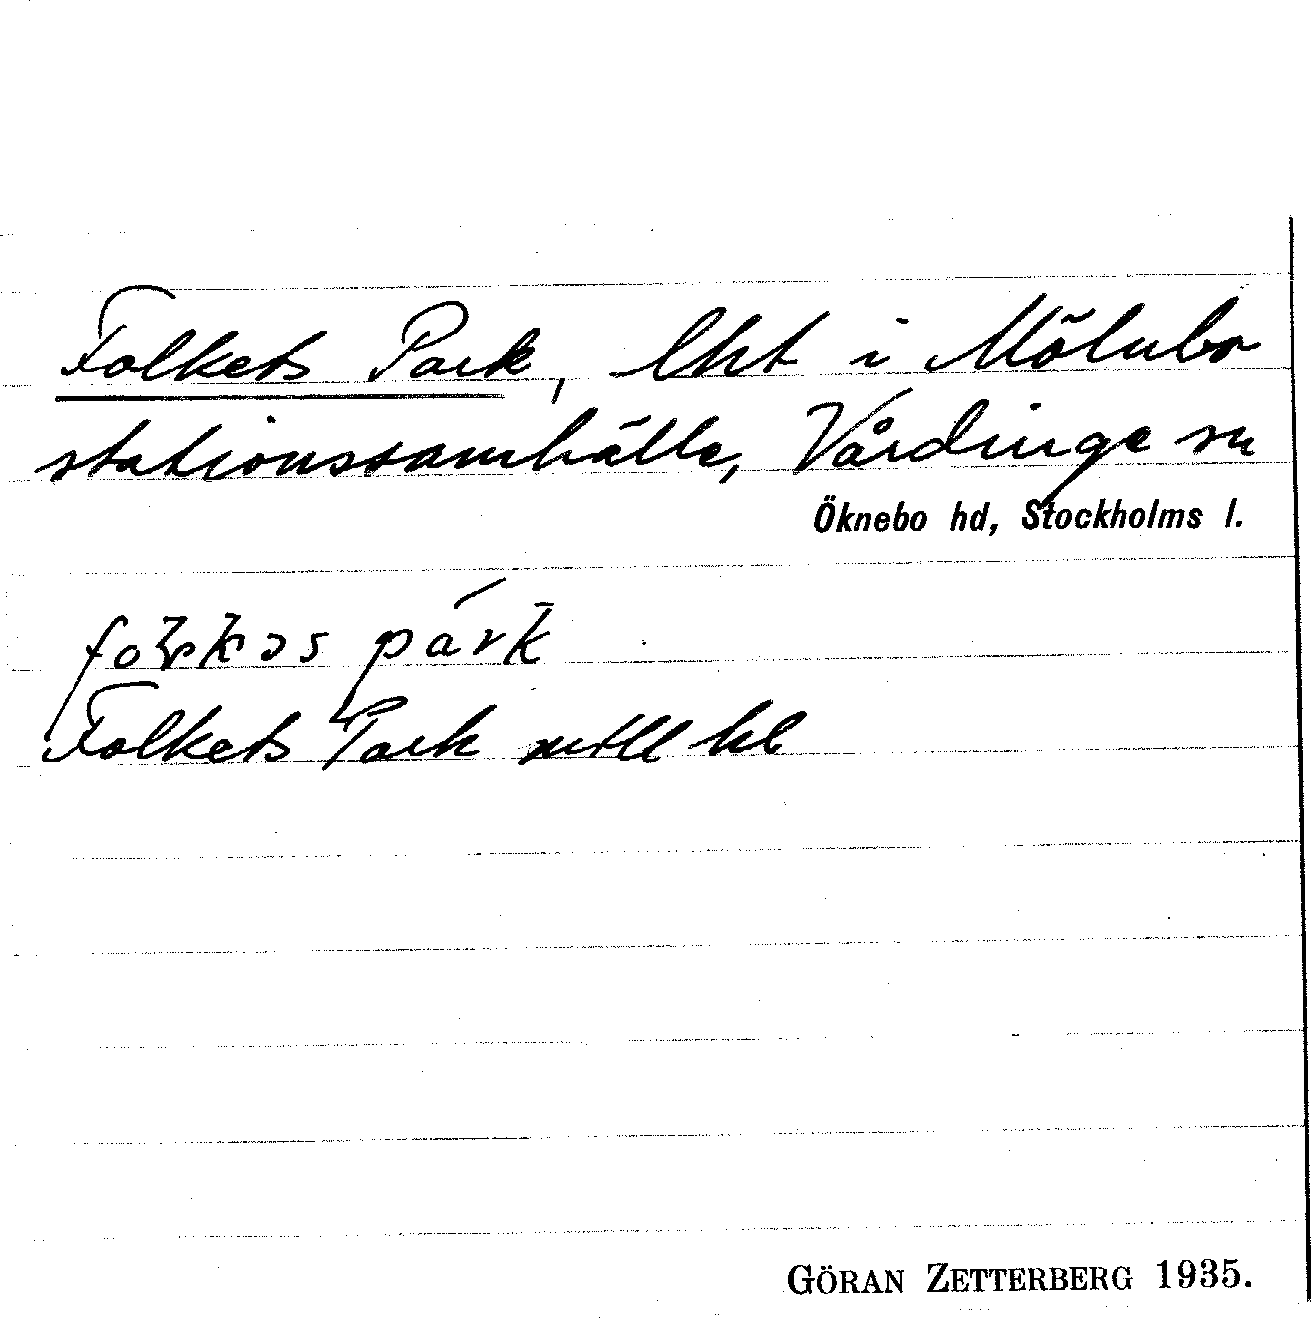 Folkets Park, lht i Mölnbo
stationssamhälle, Vårdinge sn
Öknebo hd, Stockholms l.
Folkets Park
GÖRAN ZETTERBERG 1935.